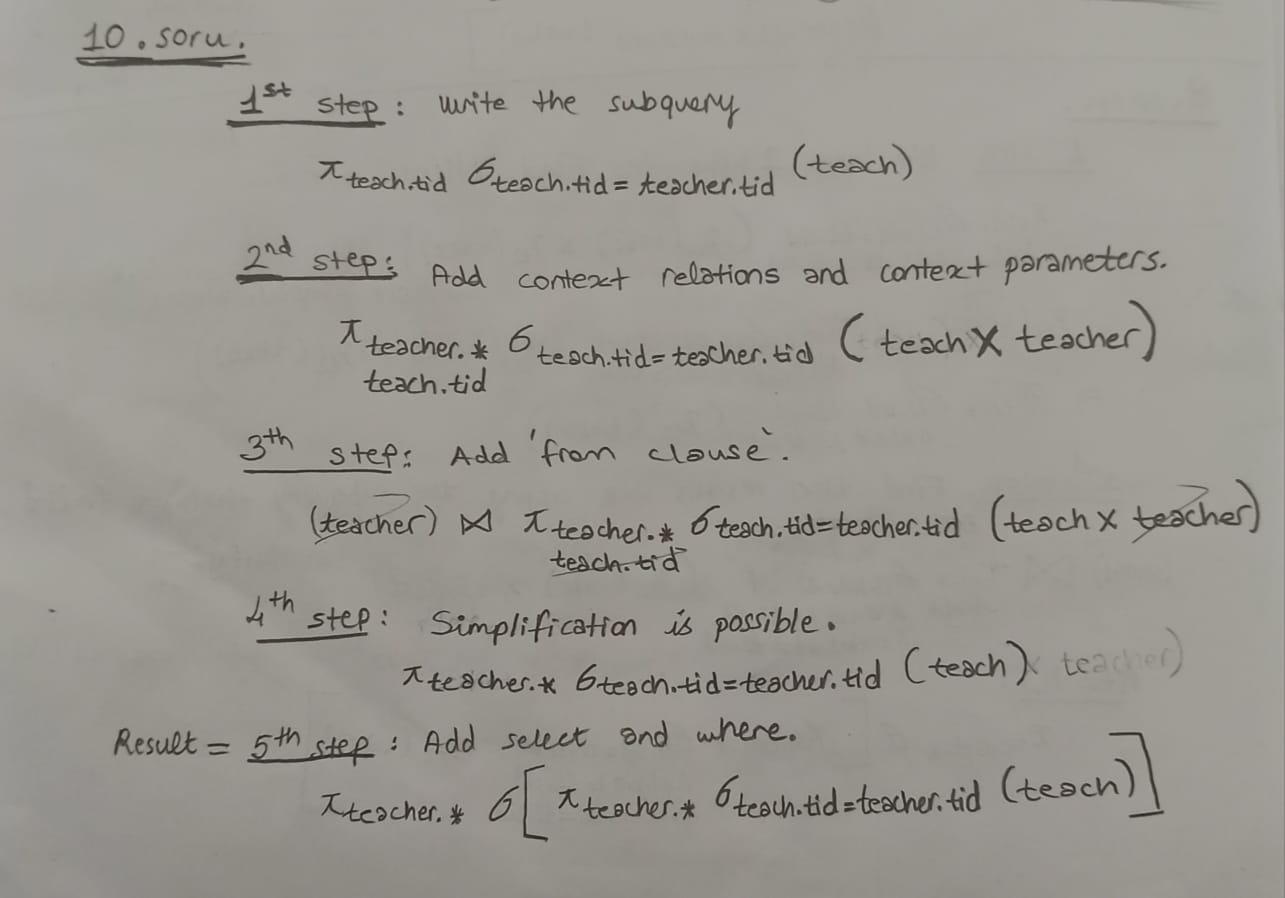 10. soru.
1st step: write the subquery
π teach.tid σ teach.tid = teacher.tid (teach)
2nd step: Add context relations and context parameters.
π teacher.* σ teach.tid = teacher.tid (teach X teacher)
teach.tid
3th step: Add 'from clouse'.
(teacher) ⋈ π teacher.* σ teach.tid=teacher.tid (teach x teacher)
teach.tid
4th step: Simplification is possible.
π teacher.* σ teach.tid=teacher.tid (teach) x teacher)
Result = 5th step: Add select and where.
π teacher.* σ [ π teacher.* σ teach.tid=teacher.tid (teach) ]